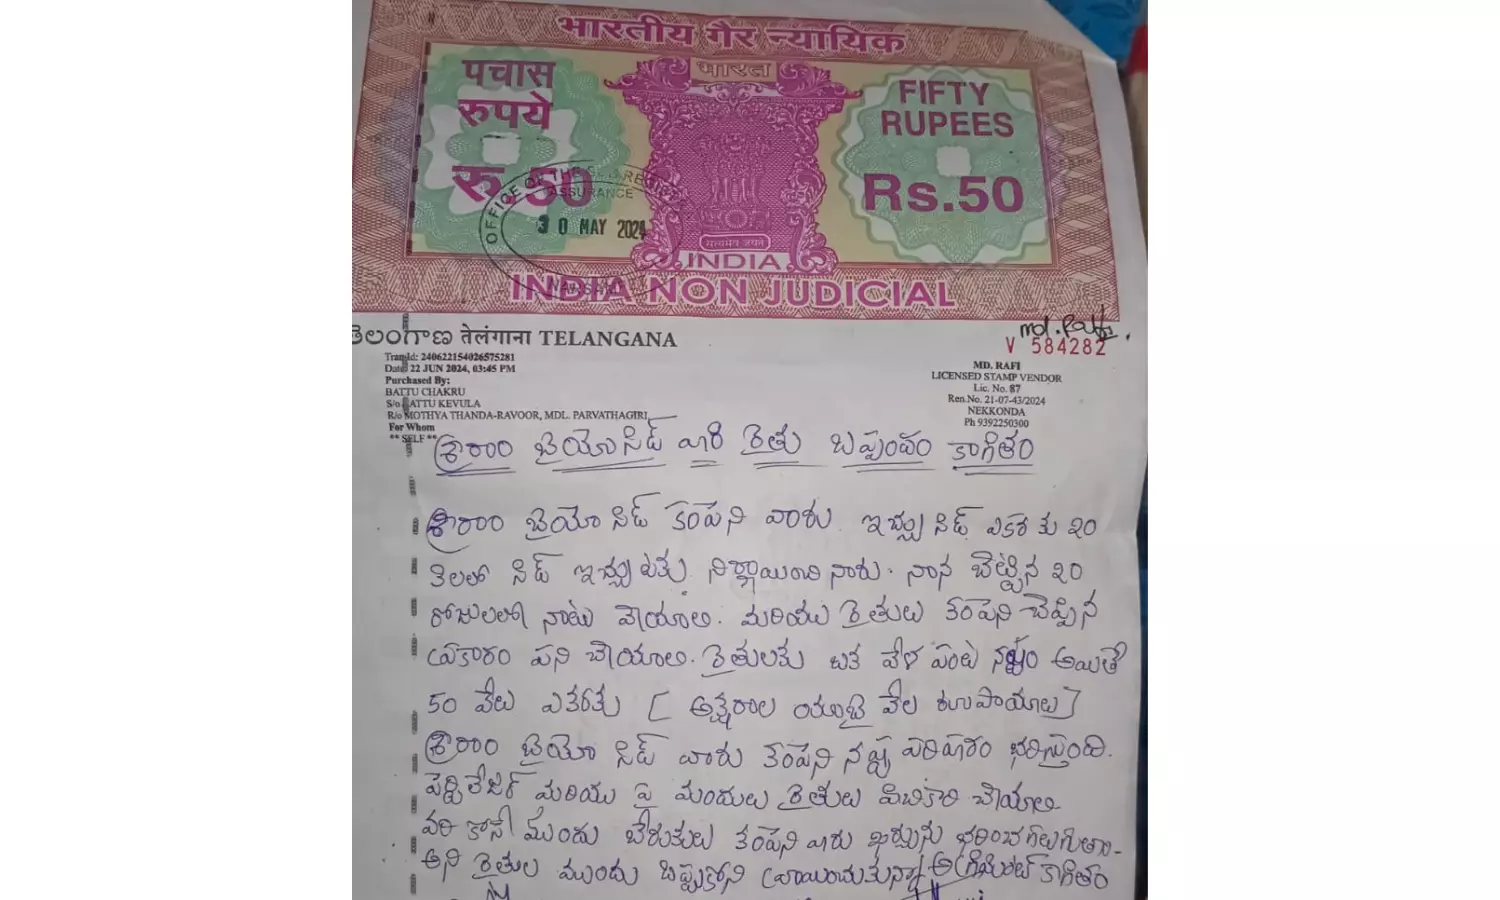 भारतीय गैर न्यायिक
पचास
रुपये
रु.50
भारत
FIFTY
RUPEES
Rs.50
OFFICE OF THE SUB REGISTRAR
ASSURANCE
30 MAY 2024
सत्यमेव जयते
INDIA
INDIA NON JUDICIAL
తెలంగాణ तेलंगाना TELANGANA
V 584282
Tran Id: 240622154026575281
Date: 22 JUN 2024, 03:45 PM
Purchased By:
BATTU CHAKRU
S/o BATTU KEVULA
R/o MOTHYA THANDA-RAVOOR, MDL. PARVATHAGIRI,
For Whom
** SELF **
MD. RAFI
LICENSED STAMP VENDOR
Lic. No. 87
Ren.No. 21-07-43/2024
NEKKONDA
Ph 9392250300
శ్రీరాం బైయో సిడ్ వారి రైతు ఒప్పందం కాగితం
శ్రీరాం బైయో సిడ్ కంపెని వారు. ఇచ్చు సిడ్ ఎకరకు 20
కిలలో సిడ్ ఇచ్చుటకు నిర్ణాయించినారు. నాన బెట్టిన 20
రోజులలో నాటు వేయాలి. మరియు రైతులు కంపెని చెప్పిన
ప్రకారం పని చేయాలి. రైతులకు ఒక వేళ పంట నష్టం అయితే
50 వేలు ఎకరకు [ అక్షరాల యాబై వేల రూపాయలు ]
శ్రీరాం బైయో సిడ్ వారు కంపెని నష్ట పరిహారం భరిస్తుంది.
మరియు పై మందులు రైతులు పిచికారి చేయాలి.
వరి కోసే ముందు కంపెని వారు ఖర్చును
అని రైతుల ముందు ఒప్పుకోని వ్రాయించుకున్న అగ్రిమెంట్ కాగితం